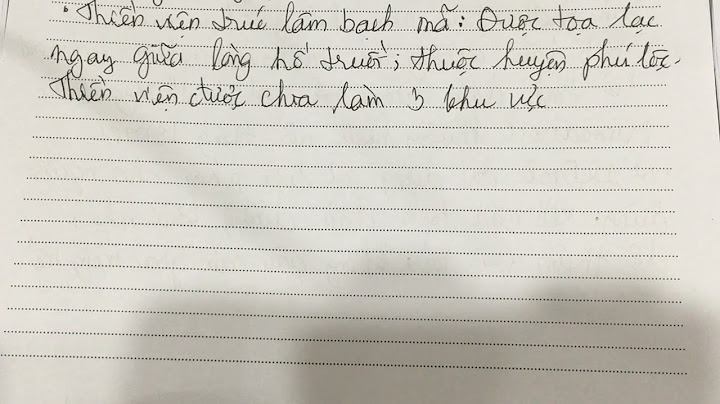 · Thiền viện trúc lâm bạch mã: Được tọa lạc
ngay giữa lòng hồ truồi; thuộc huyện phú lộc.
Thiền viện được chia làm 3 khu vực